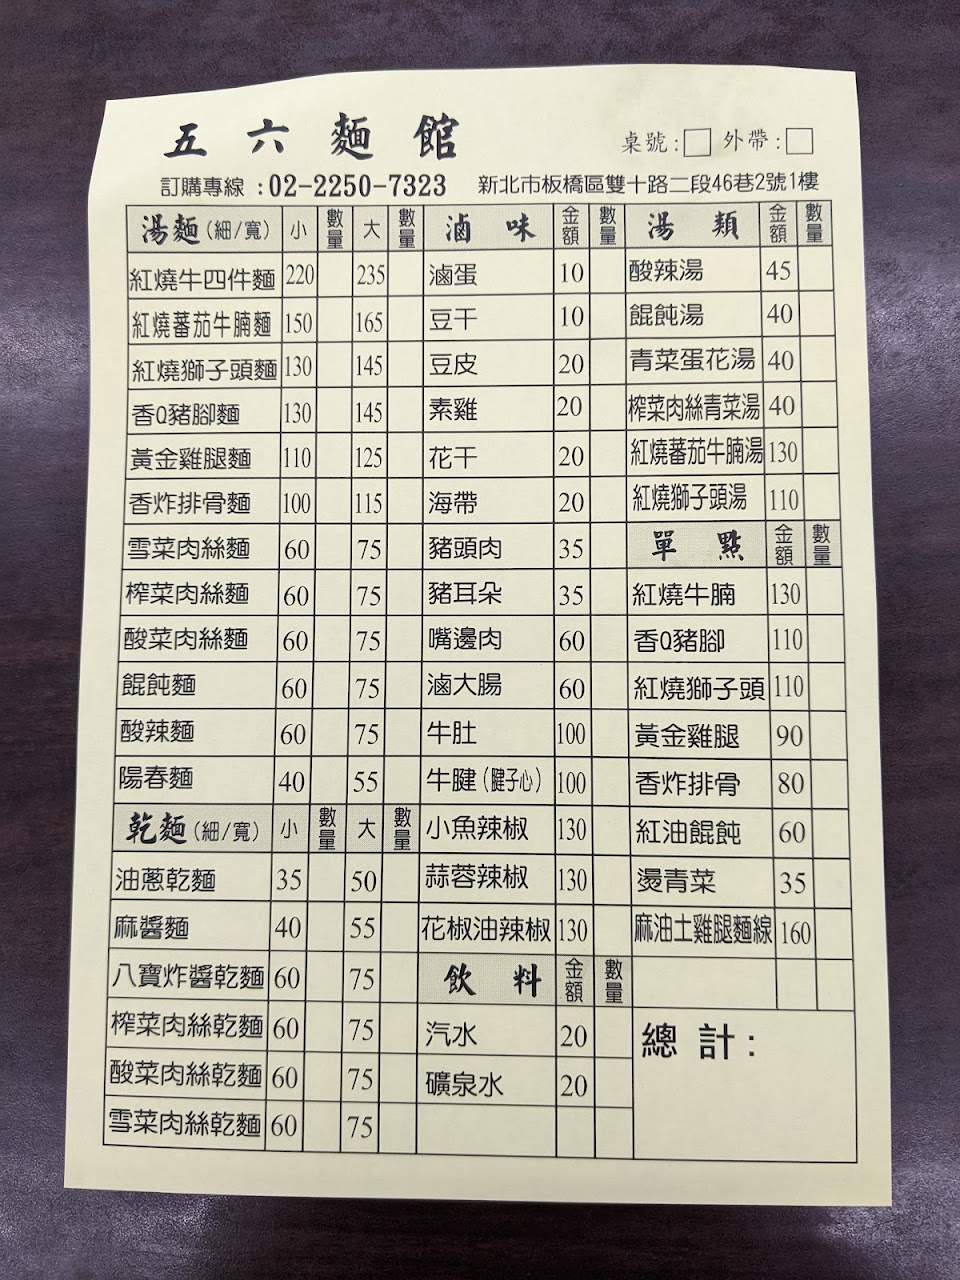 五六麵館
桌號：□ 外帶：□
訂購專線：02-2250-7323 新北市板橋區雙十路二段46巷2號1樓
湯麵(細/寬) 小 數量 大 數量
紅燒牛四件麵 220 235
紅燒蕃茄牛腩麵 150 165
紅燒獅子頭麵 130 145
香Q豬腳麵 130 145
黃金雞腿麵 110 125
香炸排骨麵 100 115
雪菜肉絲麵 60 75
榨菜肉絲麵 60 75
酸菜肉絲麵 60 75
餛飩麵 60 75
酸辣麵 60 75
陽春麵 40 55
乾麵(細/寬) 小 數量 大 數量
油蔥乾麵 35 50
麻醬麵 40 55
八寶炸醬乾麵 60 75
榨菜肉絲乾麵 60 75
酸菜肉絲乾麵 60 75
雪菜肉絲乾麵 60 75
滷味 金額 數量
滷蛋 10
豆干 10
豆皮 20
素雞 20
花干 20
海帶 20
豬頭肉 35
豬耳朵 35
嘴邊肉 60
滷大腸 60
牛肚 100
牛腱(腱子心) 100
小魚辣椒 130
蒜蓉辣椒 130
花椒油辣椒 130
飲料 金額 數量
汽水 20
礦泉水 20
湯類 金額 數量
酸辣湯 45
餛飩湯 40
青菜蛋花湯 40
榨菜肉絲青菜湯 40
紅燒蕃茄牛腩湯 130
紅燒獅子頭湯 110
單點 金額 數量
紅燒牛腩 130
香Q豬腳 110
紅燒獅子頭 110
黃金雞腿 90
香炸排骨 80
紅油餛飩 60
燙青菜 35
麻油土雞腿麵線 160
總計：